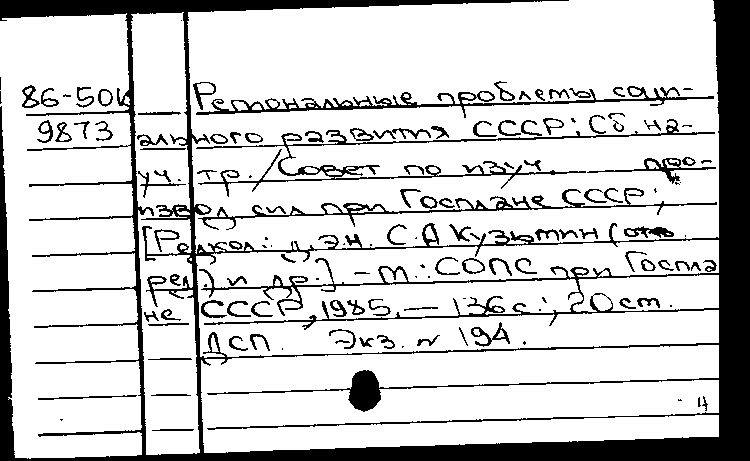 86-50к Региональные проблемы соци-
9873 ального развития СССР: Сб. на-
уч. тр. / Совет по изуч. про-
извод. сил при Госплане СССР;
[Редкол.: д.э.н. С.А Кузьмин (отв.
ред.) и др.]. - М.: СОПС при Госпла
не СССР, 1985. — 136 с.; 20 см.
ДСП. Экз. № 194.
4